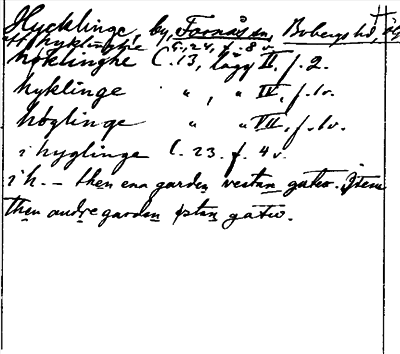 Hycklinge, by, Fornåsa sn, Bobergs hd, Ög
hyklinghe C, 24, f. 8 v.
høklinghe C. 13, lägg II, f. 2.
hyklinge " , " IV, f. 1v.
høglinge " " VII, f. 1v.
i hyglinge C. 23. f. 4 v.
i h. – then ena garden vestan gatw. Item
then andre garden østan gatw.